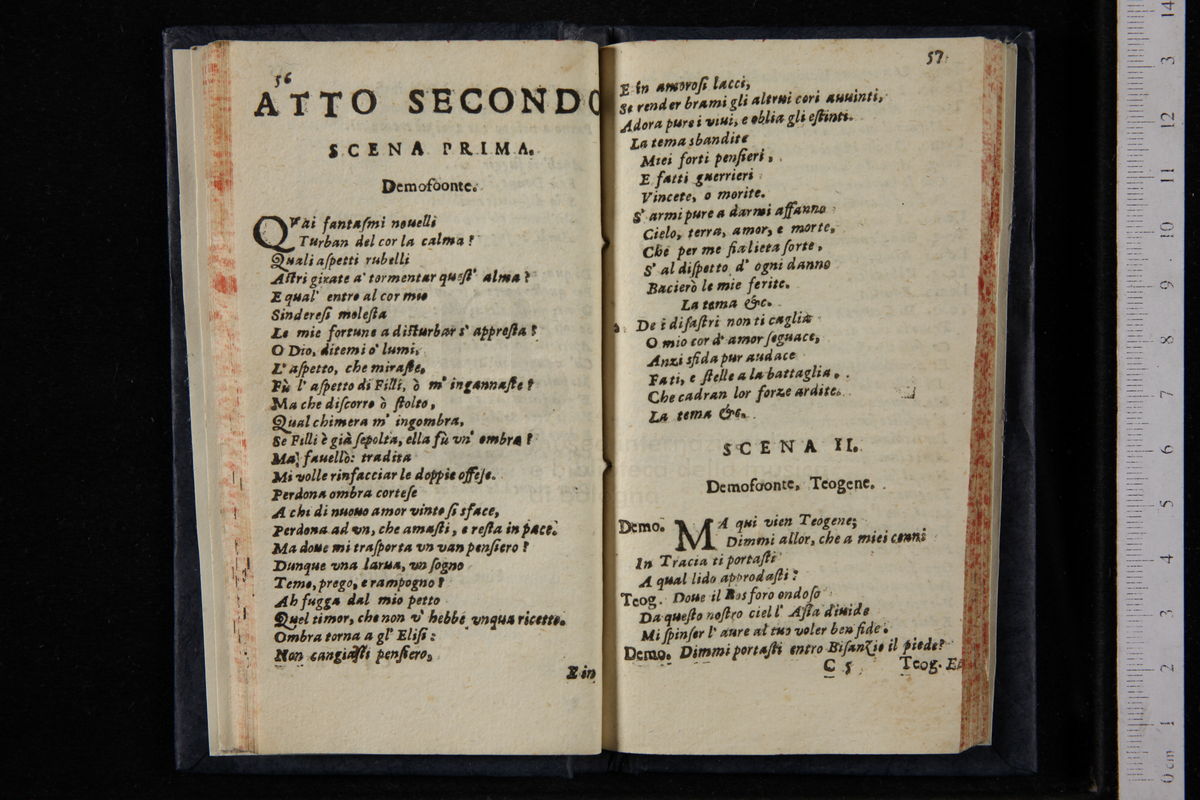 56
ATTO SECONDO
SCENA PRIMA.
Demofoonte.
QVai fantaſmi nouelli
Turban del cor la calma?
Quali aſpetti rubelli
Aſtri girate a' tormentar queſt' alma?
E qual' entro al cor mio
Sindereſi moleſta
Le mie fortune a diſturbar s' appreſta?
O Dio, ditemi o' lumi,
L' aſpetto, che miraſte,
Fù l' aſpetto di Filli, ò m' ingannaſte?
Ma che diſcorro ò ſtolto,
Qual chimera m' ingombra,
Se Filli è già ſepolta, ella fù vn' ombra?
Ma, fauellò: tradita
Mi volle rinfacciar le doppie offeſe.
Perdona ombra corteſe
A chi di nuouo amor vinto ſi sface,
Perdona ad vn, che amaſti, e reſta in pace.
Ma doue mi traſporta vn van penſiero?
Dunque vna larua, vn ſogno
Temo, prego, e rampogno?
Ah fugga dal mio petto
Quel timor, che non v' hebbe vnqua ricetto.
Ombra torna a gl' Eliſi:
Non cangiaſti penſiero,
E in
57
E in amoroſi lacci,
Se render brami gli altrui cori auuinti,
Adora pure i viui, e oblia gli eſtinti.
La tema sbandite
Miei forti penſieri,
E fatti guerrieri
Vincete, o morite.
S' armi pure a darmi affanno
Cielo, terra, amor, e morte,
Che per me fia lieta ſorte,
S' al diſpetto d' ogni danno
Bacierò le mie ferite.
La tema &c.
De i diſaſtri non ti caglia
O mio cor d' amor ſeguace,
Anzi sfida pur audace
Fati, e ſtelle a la battaglia.
Che cadran lor forze ardite.
La tema &c.
SCENA II.
Demofoonte, Teogene.
Demo. MA qui vien Teogene;
Dimmi allor, che a miei cenni
In Tracia ti portaſti
A qual lido approdaſti?
Teog. Doue il Bosforo ondoſo
Da queſto noſtro ciel l' Aſia diuide
Mi ſpinſer l' aure al tuo voler ben fide.
Demo. Dimmi portaſti entro Biſanzio il piede?
C 5 Teog.